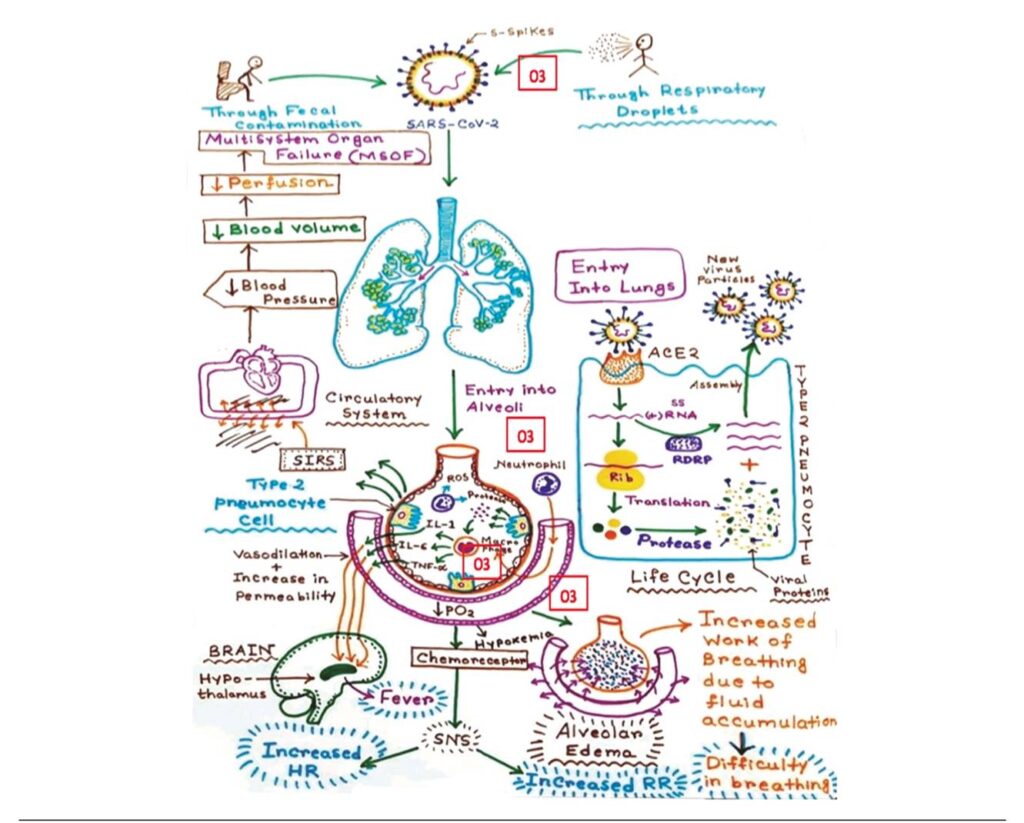 S-Spikes
O3
Through Fecal
Contamination
SARS-CoV-2
Through Respiratory
Droplets
Multisystem Organ
Failure (MSOF)
↓ Perfusion
↓ Blood volume
↓ Blood
Pressure
Circulatory
System
SIRS
Entry
Into Lungs
New
Virus
Particles
ACE2
Assembly
SS
(+)RNA
RDRP
Rib
Translation
Protease
+
Viral
Proteins
Life Cycle
TYPE 2 PNEUMOCYTE
Entry into
Alveoli
O3
Neutrophil
Type-2
pneumocyte
Cell
ROS
Protein
IL-1
IL-6
TNF-α
Macro
phage
O3
O3
Vasodilation
+
Increase in
Permeability
↓PO2
Hypoxemia
Chemoreceptor
BRAIN
Hypo-
thalamus
Fever
SNS
Increased
HR
Increased RR
Alveolar
Edema
Increased
work of
Breathing
due to
fluid
accumulation
Difficulty
in breathing